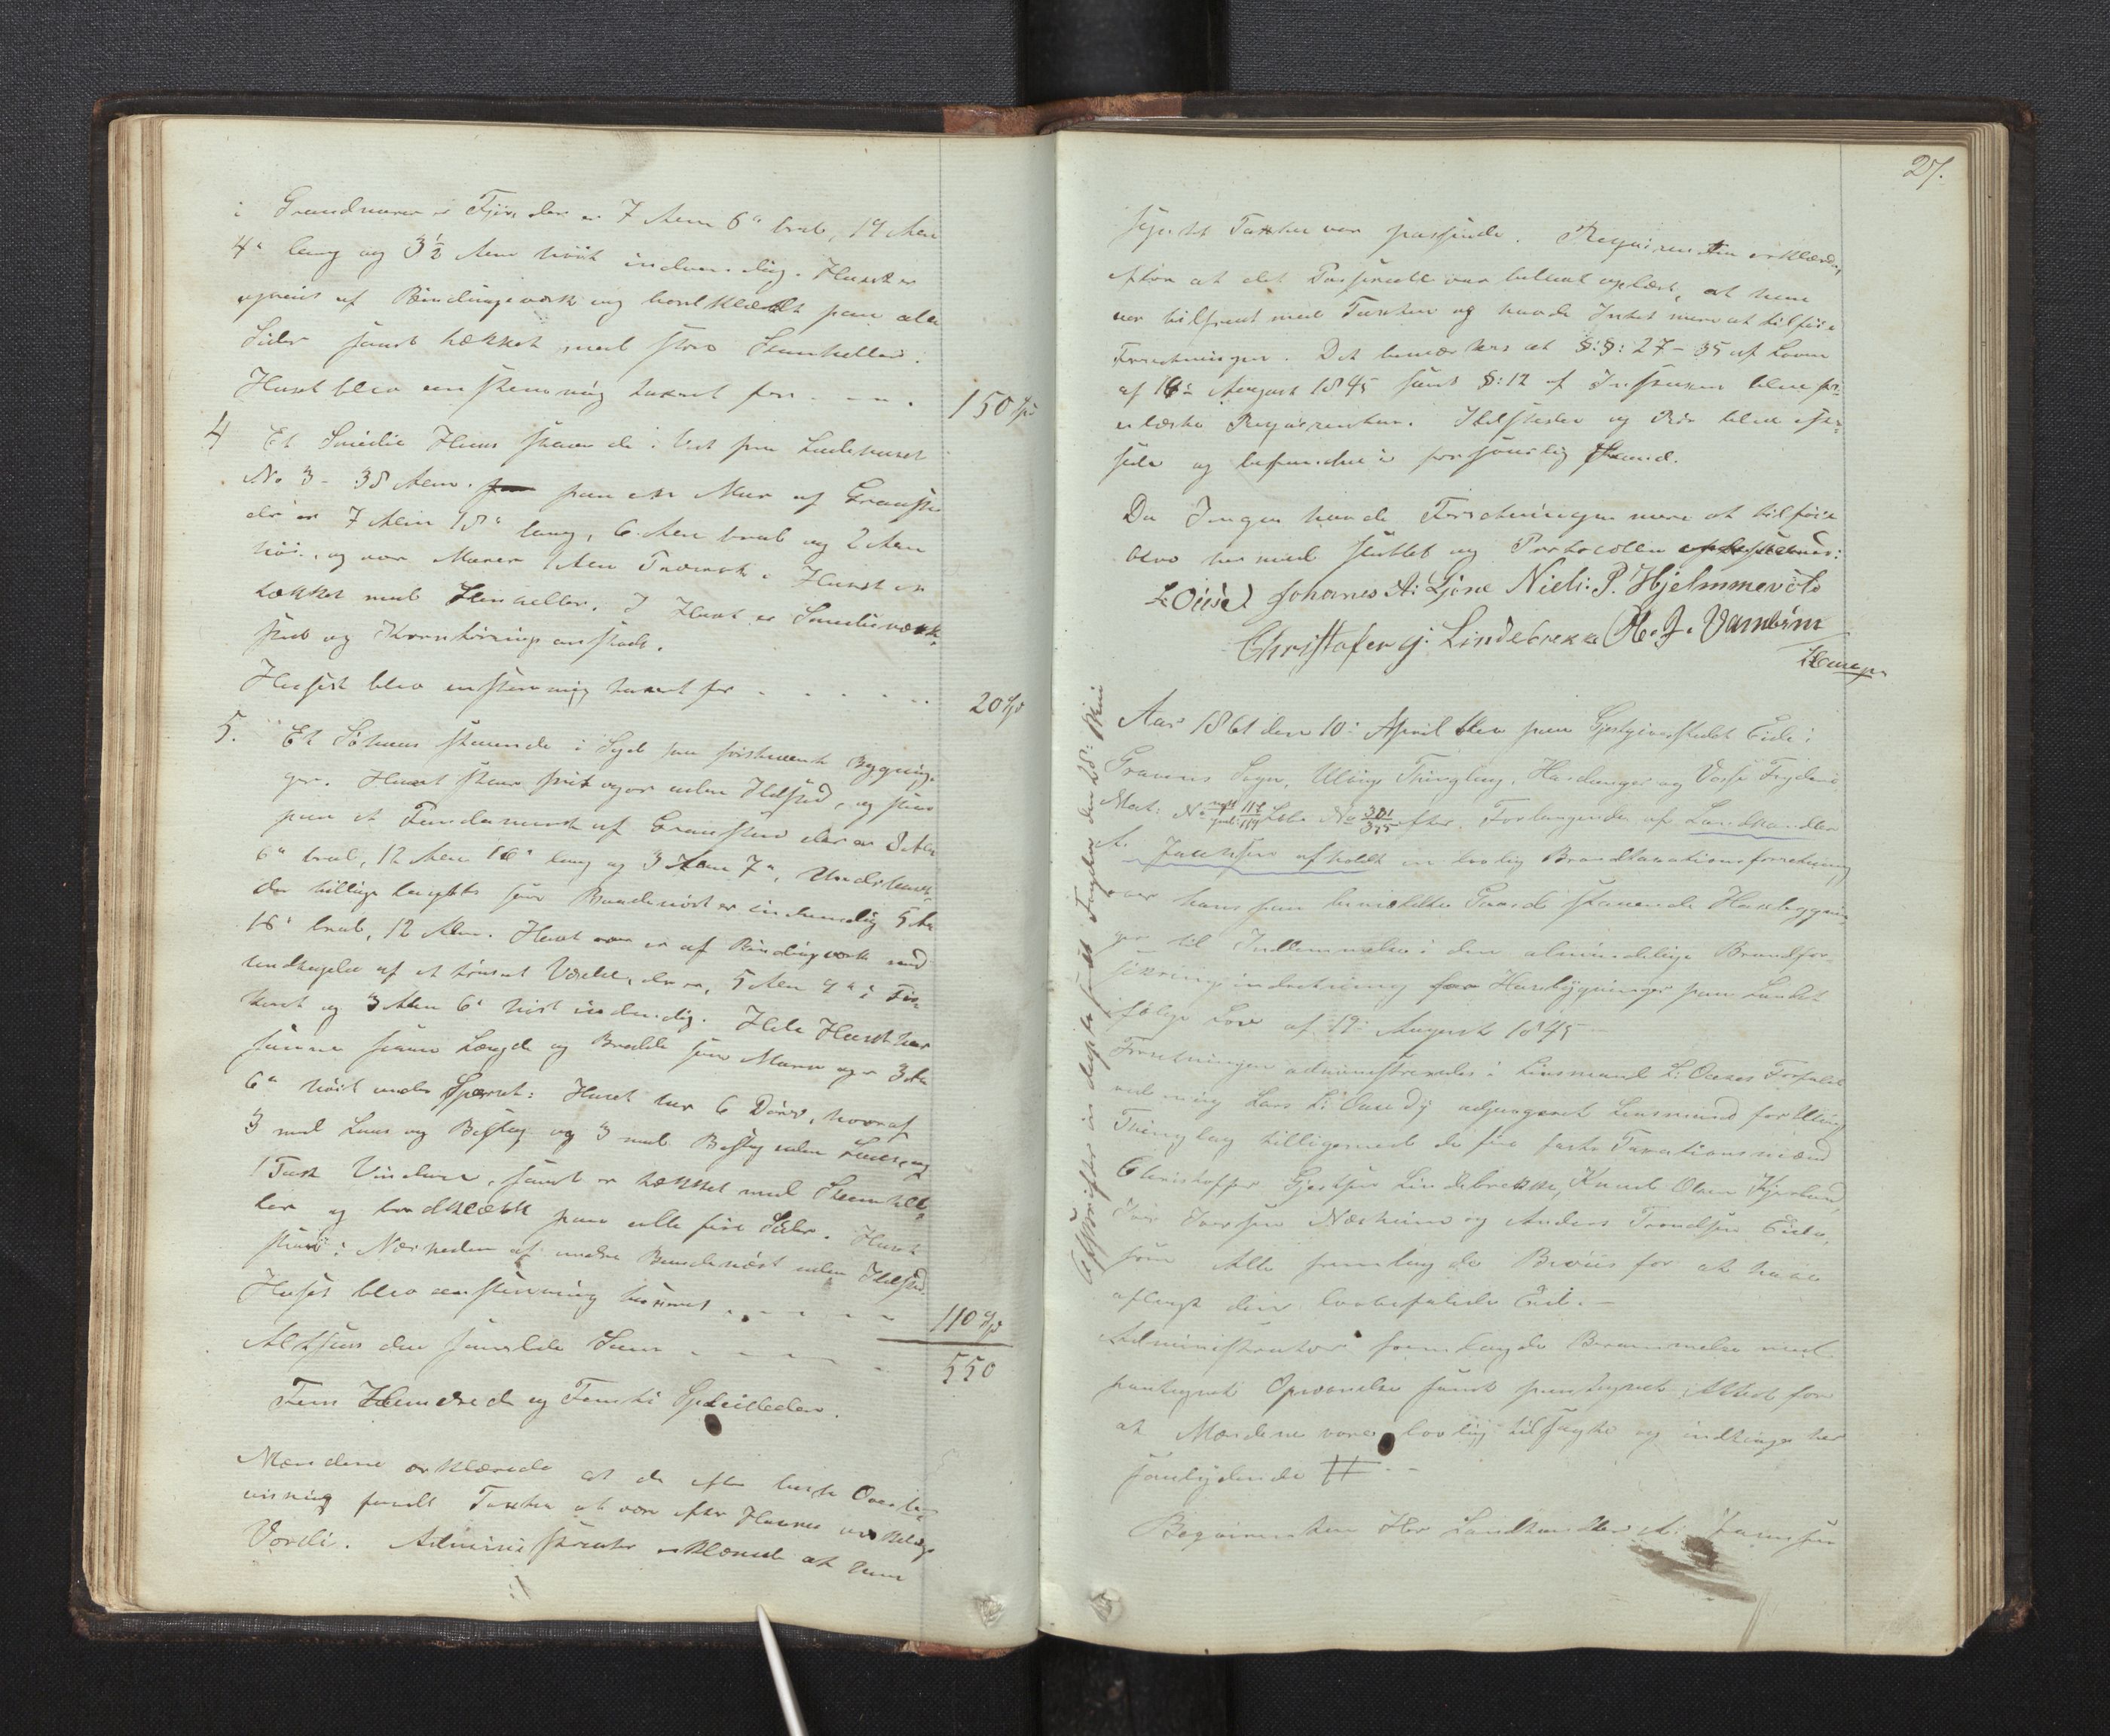 i Grundmuren er Fjøs, der er 7 Alen 6" bred, 19 Alen
4" lang og 3½ Alen høit indvendig. Huset er
opreist af Bindingsværk og bordklædt paa alle
Sider samt tækket med store Steenheller.
Huset blev eenstemmig taxeret for - - - . 150 Spd
4 Et Smedie Huus staaende i Vest fra Ladehuset
No 3 - 38 Alen. paa en Muur af Graasteen
der er 7 Alen 18" lang, 6 Alen bred og 2 Alen
høi, og hvor Muren 1 Alen Huset er
tækket med Steenheller. I Huset er Smedieværk-
sted og Korntørringsanstalt.
Huset blev enstemmig taxeret for - - - - - .. 20 Spd
5. Et Søhuus staaende i Syd fra Bygnin-
ger. Huset staar frit og er uden Ildsted, og staar
paa et Fundament af Graasteen der er 8 Alen
6" bred, 12 Alen 16" lang og 3 Alen 7",
der tillige benyttes som Baadenøst er indvendig 5 Al
16" bred, 12 Alen. Huset er af Bindingværk med
Undtagelse af et tømret Værelse, der er, 5 Alen 9" i Fir-
kant og 3 Alen 6" høit indvendig. Hele Huset har
samme Længde og Bredde som Muren og er 3 Al
6" høit under Sperret: Huset har 6 Døre, hvoraf
3 med Laas og Beslag og 3 med Beslag uden Laas, og
1 Fask Vindue, samt er tækket med Steenhel-
ler og bordklædt paa alle fire Sider. Huset
staar i Nærheden af andre Baadenøst uden Ildsted.
Huset blev eenstemmig taxeret . - - - - - 110 Spd
Altsaa den samlede Sum - - - - - - . 550
Fem Hundrede og Femti Speciedaler.
Mændene erklærede at de efter bedste Overbe-
viisning fandt Taxten at være efter Husenes
Værdi. Administrator erklærede at han
27.
syntes Taxten var passende. Reqvirenten erklærede,
efter at det Passerede var bleven oplæst, at han
var tilfreds med Taxten og havde Intet mere at tilføie
Forretningen. Det bemærkes at §:§: 27 - 35 af Loven
af 19de August 1845 samt §: 12 af Instruxen bleve fo-
relæste Reqvirenten. Ildsteder og Rør bleve efter-
sede og befundne i forsvarlig Stand.
Da Ingen havde Forretningen mere at tilføie
blev hermed sluttet og Protocollen
L Ouse Johanes A: Gjøne Niels: P. Hjelmmevolo
Christofer G: Lindebrekke O. J. Vambem
Aar 1861 den 10: April blev paa Gjestgiverstedet Eide i
Gravens Sogn, Ulviigs Thinglag, Hardanger og Vosse Fogderie,
Mat: No nytt 117 Løbe No 301/375 efter Forlangende af Landhandler
A. Jaensen afholdt en lovlig Brandtaxationsforretning
over hans paa bemeldte Gaard staaende Huusbygnin-
ger til Indlemmelse i den almindelige Brandfor-
sikringsindretning for Huusbygninger paa Landet
ifølge Lov af 19: August 1845
Forretningen administreredes i Lensmand L: Ouses Forfald
ved mig Lars L: Ouse Dy adjungeret Lensmand for Ulvigs
Thinglag tilligemed de fire faste Taxationsmænd
Christoffer Gjertsen Lindebrekke, Knud Olsen Kjerland,
Iver Iversen Næsheim og Anders Trondsen Eide,
som Alle fremlagde Beviis for at have
aflagt den lovbefalede Eed. —
Administrator fremlagde Berammelse med
paategnet Opnævnelse samt paategnet Attest for
at Mændene vare lovlig tilsagte og indtages her
saalydende #
Reqvirenten Hr Landhandler A. Jaensen
Afskriften indsendt til Fogden den 28: Mai